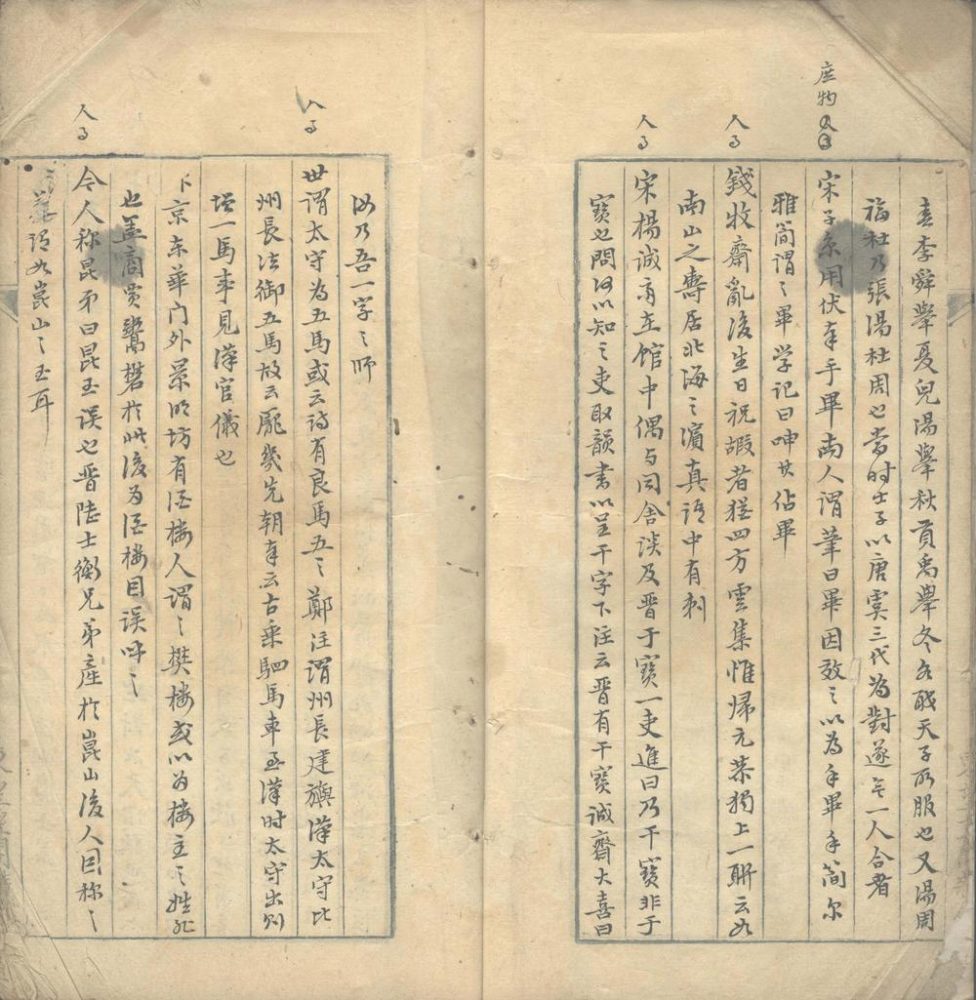 春李舜舉夏兒湯舉秋貢禹舉冬各職天子所服也又湯周
福社乃張湯杜周也當时士子以唐虞三代為對遂无一人合者
产物
宋子京用伏事手畢南人谓筆曰畢因效之以為手畢手簡尔
雅简谓之畢学记曰呻其佔畢
人事
錢牧齋亂後生日祝嘏者猶四方雲集惟歸元恭獨上一聯云如
南山之壽居北海之濱真语中有刺
人事
宋楊诚斋在館中偶与同舍谈及晋于寶一吏進曰乃干寶非于
寶也問何以知之吏取韻書以呈干字下注云晋有干寶诚齋大喜曰
汝乃吾一字之师
人事
世谓太守为五馬或云诗有良馬五之鄭注谓州長建旟漢太守比
州長法御五馬故云龐幾先朝奉云古乗駟馬車至漢时太守出则
增一馬事見漢官儀也
卞京东華门外景明坊有酒樓人谓之樊樓或以为樓主之姓非
也盖商賈鬻礬於此後为酒樓因误呼之
人事
今人称昆弟曰昆玉误也晋陆士衡兄弟産於崑山後人因称之
谓如崑山之玉耳